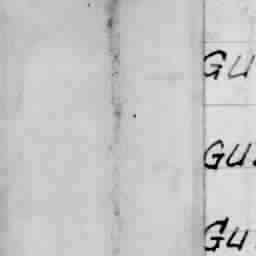 GU
GU
Gu